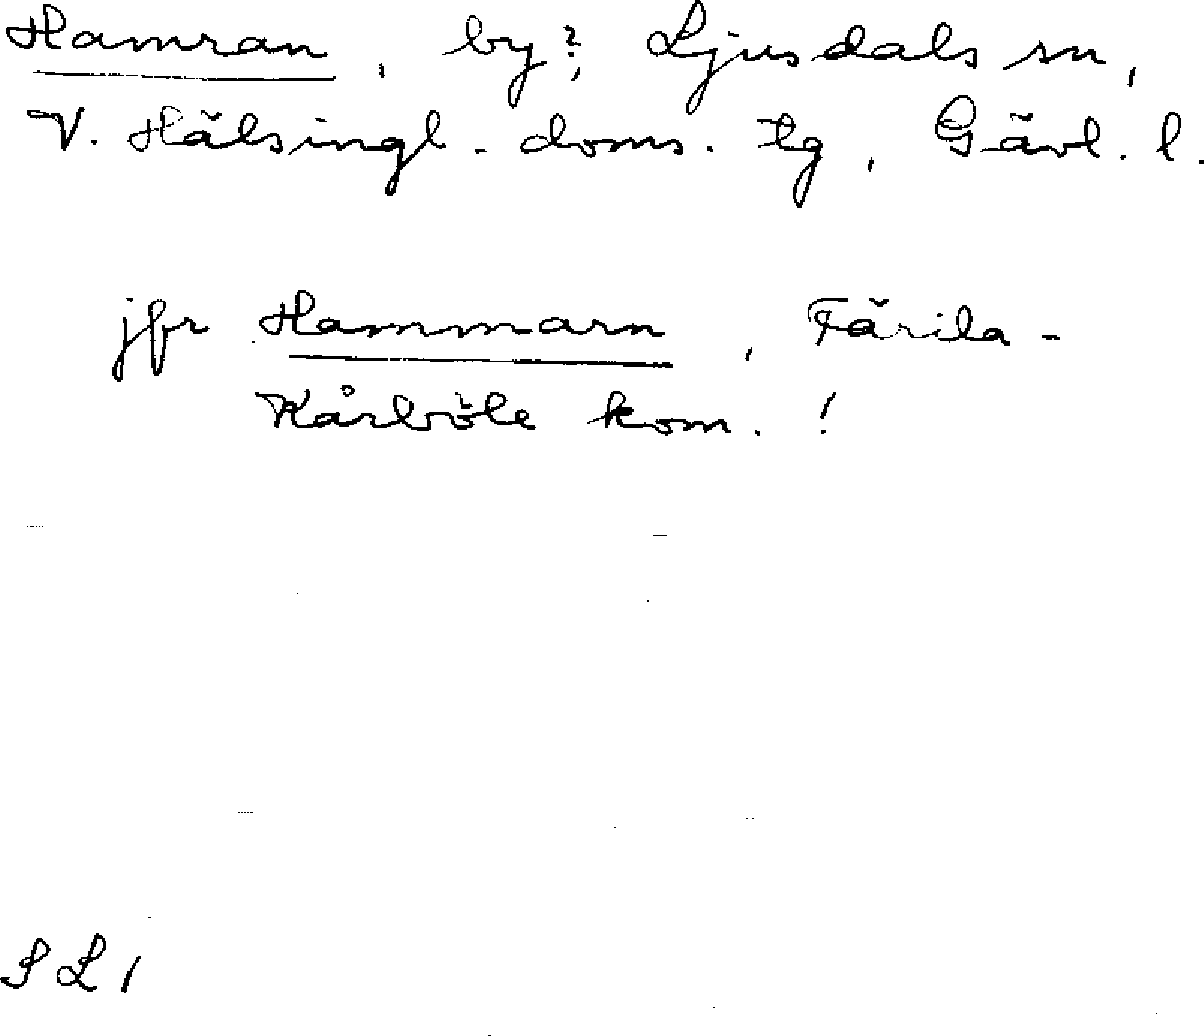 Hamran, by?, Ljusdals sn,
V. Hälsingl. doms. tg, Gävl. l.
jfr Hammarn, Färila-
Kårböle kom. !
SL 1